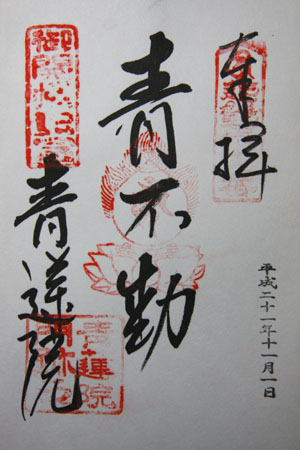 奉拝
平成二十一年十一月一日
青不動
青蓮院
青蓮院